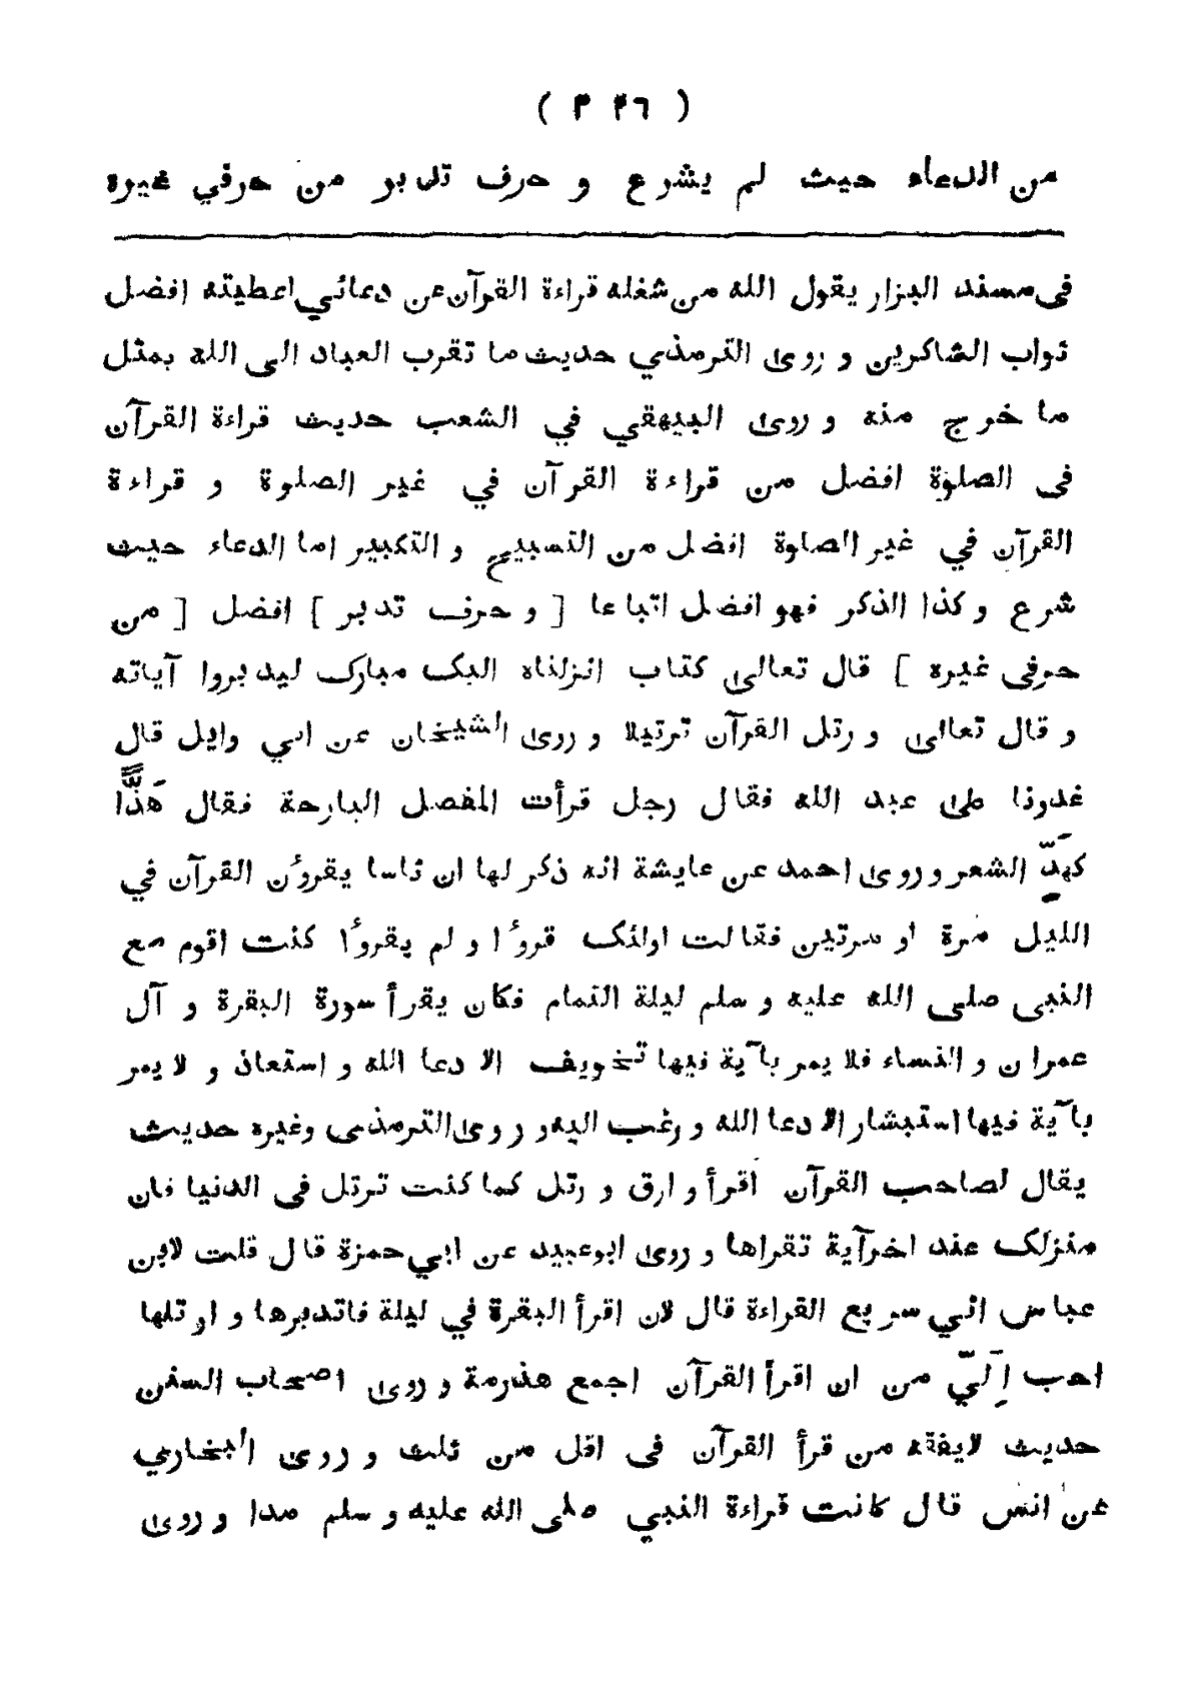 ( ٣٤٦ )
من الدعاء حيث لم يشرع و حرف تدبر من حرفي غيره
فى مسند البزار يقول الله من شغله قراءة القرآن عن دعائي اعطيته افضل
ثواب الشاكرين و روى الترمذي حديث ما تقرب العباد الى الله بمثل
ما خرج منه و روى البيهقي في الشعب حديث قراءة القرآن
فى الصلوة افضل من قراءة القرآن في غير الصلوة و قراءة
القرآن في غير الصلوة افضل من التسبيح و التكبير اما الدعاء حيث
شرع و كذا الذكر فهو افضل اتباعا [ و حرف تدبر ] افضل [ من
حرفى غيره ] قال تعالى كتاب انزلناه اليک مبارک ليدبروا آياته
و قال تعالى و رتل القرآن ترتيلا و روى الشيخان عن ابي وايل قال
غدونا على عبد الله فقال رجل قرأت المفصل البارحة فقال هَذًّا
كهَذِّ الشعر و روى احمد عن عايشة انه ذكر لها ان ناسا يقروٴن القرآن في
الليل مرة او مرتين فقالت اولئک قروٴا و لم يقروٴا كنت اقوم مع
النبى صلى الله عليه و سلم ليلة التمام فكان يقرأ سورة البقرة و آل
عمران و النساء فلا يمر بآية فيها تخويف الا دعا الله و استعاذ و لا يمر
بآية فيها استبشار الا دعا الله و رغب اليه و روى الترمذى وغيره حديث
يقال لصاحب القرآن اقرأ و ارق و رتل كما كنت ترتل فى الدنيا فان
منزلک عند اخرآية تقراها و روى ابوعبيد عن ابي حمزة قال قلت لابن
عباس اني سريع القراءة قال لان اقرأ البقرة في ليلة فاتدبرها و ارتلها
احب اِلَيّ من ان اقرأ القرآن اجمع هذرمة و روى اصحاب السنن
حديث لايفقه من قرأ القرآن فى اقل من ثلث و روى البخاري
عن انس قال كانت قراءة النبي صلى الله عليه و سلم مدا و روى